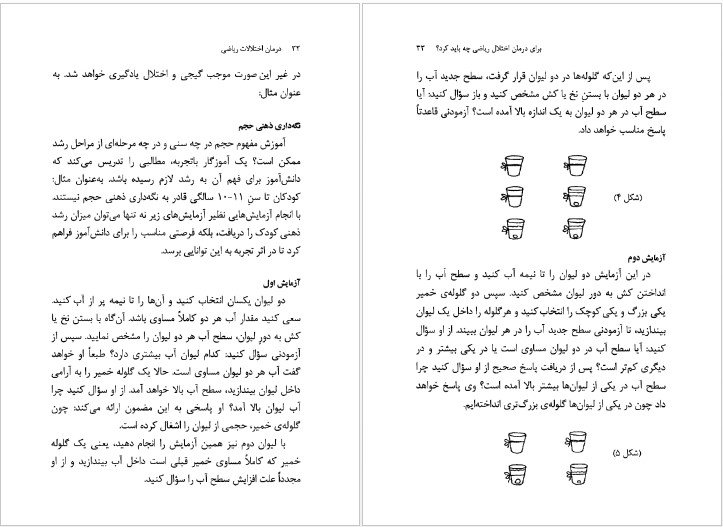 ۳۲ درمان اختلالات ریاضی
در غیر این صورت موجب گیجی و اختلال یادگیری خواهد شد. به
عنوان مثال:
نگه‌داری ذهنی حجم
آموزش مفهوم حجم در چه سنی و در چه مرحله‌ای از مراحل رشد
ممکن است؟ یک آموزگار باتجربه، مطالبی را تدریس می‌کند که
دانش‌آموز برای فهم آن به رشد لازم رسیده باشد. به‌عنوان مثال:
کودکان تا سن ۱۱-۱۰ سالگی قادر به نگه‌داری ذهنی حجم نیستند.
با انجام آزمایش‌هایی نظیر آزمایش‌های زیر نه تنها می‌توان میزان رشد
ذهنی کودک را دریافت، بلکه فرصتی مناسب را برای دانش‌آموز فراهم
کرد تا در اثر تجربه به این توانایی برسد.
آزمایش اول
دو لیوان یکسان انتخاب کنید و آن‌ها را تا نیمه پر از آب کنید.
سعی کنید مقدار آب هر دو کاملاً مساوی باشد. آن‌گاه با بستن نخ یا
کش به دور لیوان، سطح آب هر دو لیوان را مشخص نمایید. سپس از
آزمودنی سؤال کنید: کدام لیوان آب بیشتری دارد؟ طبعاً او خواهد
گفت آب هر دو لیوان مساوی است. حالا یک گلوله خمیر را به آرامی
داخل لیوان بیندازید، سطح آب بالا خواهد آمد. از او سؤال کنید چرا
آب لیوان بالا آمد؟ او پاسخی به این مضمون ارائه می‌کند: چون
گلوله‌ی خمیر، حجمی از لیوان را اشغال کرده است.
با لیوان دوم نیز همین آزمایش را انجام دهید، یعنی یک گلوله
خمیر که کاملاً مساوی خمیر قبلی است داخل آب بیندازید و از او
مجدداً علت افزایش سطح آب را سؤال کنید.
برای درمان اختلال ریاضی چه باید کرد؟ ۳۳
پس از این‌که گلوله‌ها در دو لیوان قرار گرفت، سطح جدید آب را
در هر دو لیوان با بستن نخ یا کش مشخص کنید و باز سؤال کنید: آیا
سطح آب در هر دو لیوان به یک اندازه بالا آمده است؟ آزمودنی قاعدتاً
پاسخ مناسب خواهد داد.
(شکل ۴)
آزمایش دوم
در این آزمایش دو لیوان را تا نیمه آب کنید و سطح آب را با
انداختن کش به دور لیوان مشخص کنید. سپس دو گلوله‌ی خمیر
یکی بزرگ و یکی کوچک را انتخاب کنید و هرگلوله را داخل یک لیوان
بیندازید، تا آزمودنی سطح جدید آب را در هر لیوان ببیند. از او سؤال
کنید: آیا سطح آب در دو لیوان مساوی است یا در یکی بیشتر و در
دیگری کم‌تر است؟ پس از دریافت پاسخ صحیح از او سؤال کنید چرا
سطح آب در یکی از لیوان‌ها بیشتر بالا آمده است؟ وی پاسخ خواهد
داد چون در یکی از لیوان‌ها گلوله‌ی بزرگ‌تری انداخته‌ایم.
(شکل ۵)